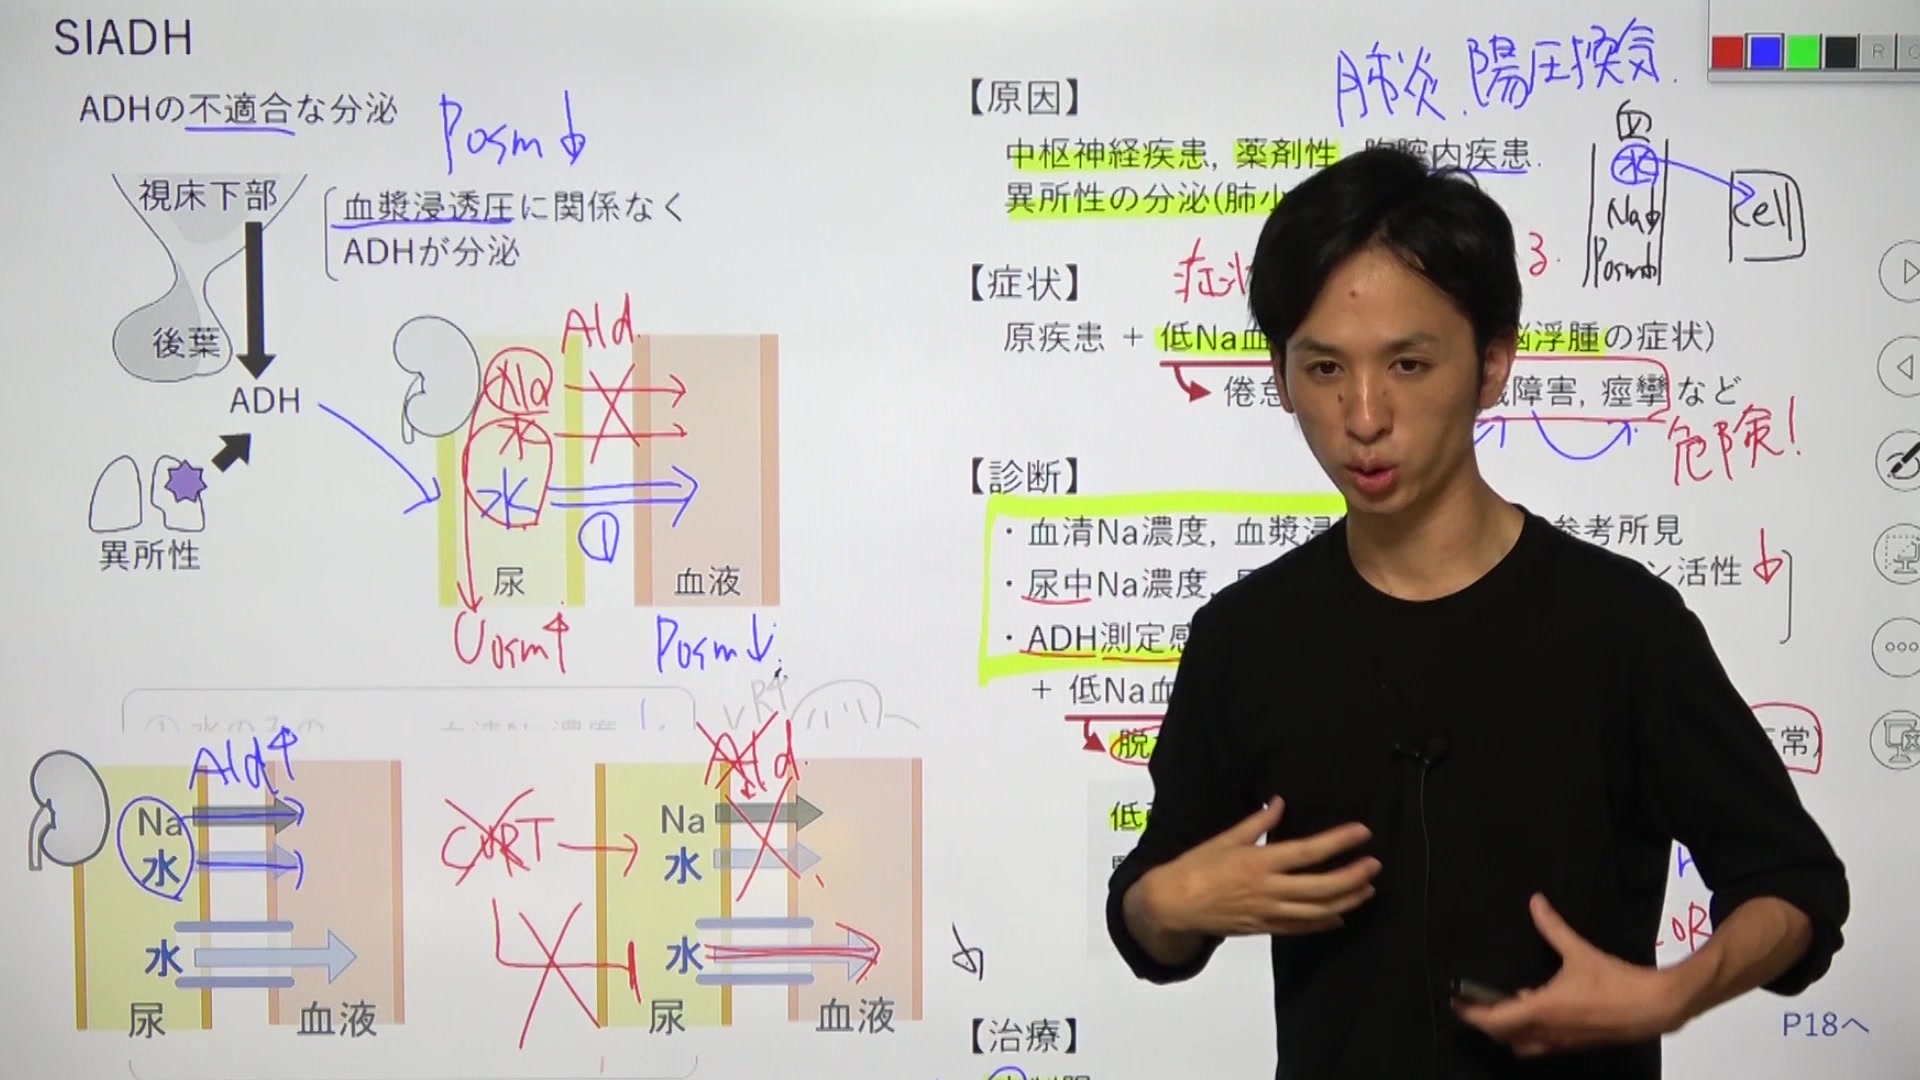 SIADH
ADHの不適合な分泌
Posm↓
視床下部
血漿浸透圧に関係なく
ADHが分泌
後葉
ADH
異所性
Ald
Na
水
水
①
尿
血液
Uosm↑
Posm↓
Ald↑
Na
水
水
尿
血液
CORT
Ald
Na
水
水
尿
血液
肺炎、陽圧換気
【原因】
中枢神経疾患, 薬剤性, 胸腔内疾患
異所性の分泌(肺小
血
水
Na↓
Posm↓
cell
【症状】
症状
る.
原疾患 + 低Na血 浮腫の症状)
倦怠 障害, 痙攣 など
危険!
【診断】
・血清Na濃度, 血漿浸 参考所見
・尿中Na濃度, ン活性 ↓
・ADH測定感
+ 低Na血
脱 正常)
低
OR
【治療】
P18へ